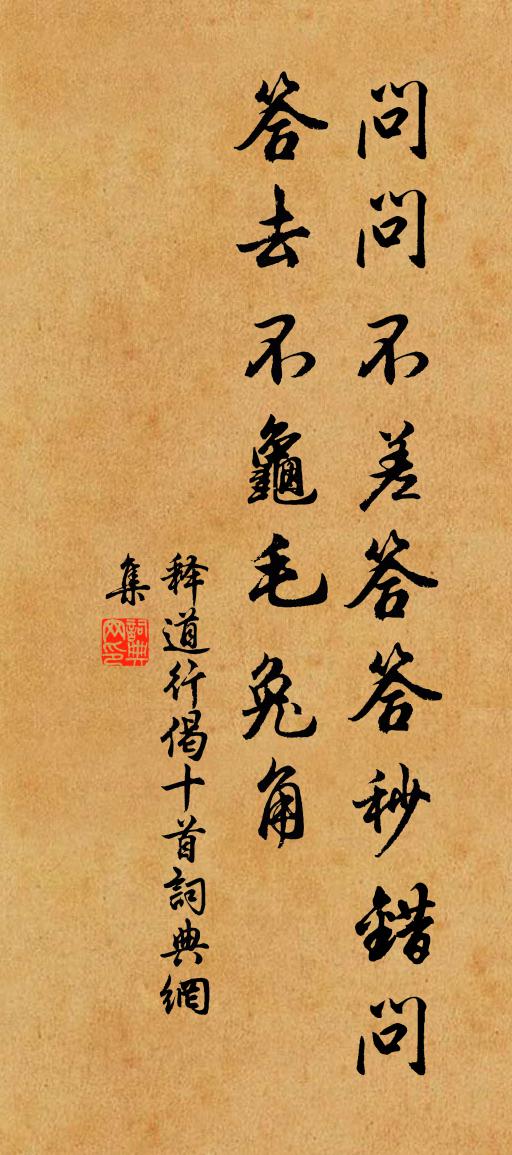 問問不差答答秒錯問
答去不龜毛兔角
释道行偈十首詞典網
集
詞典
网印